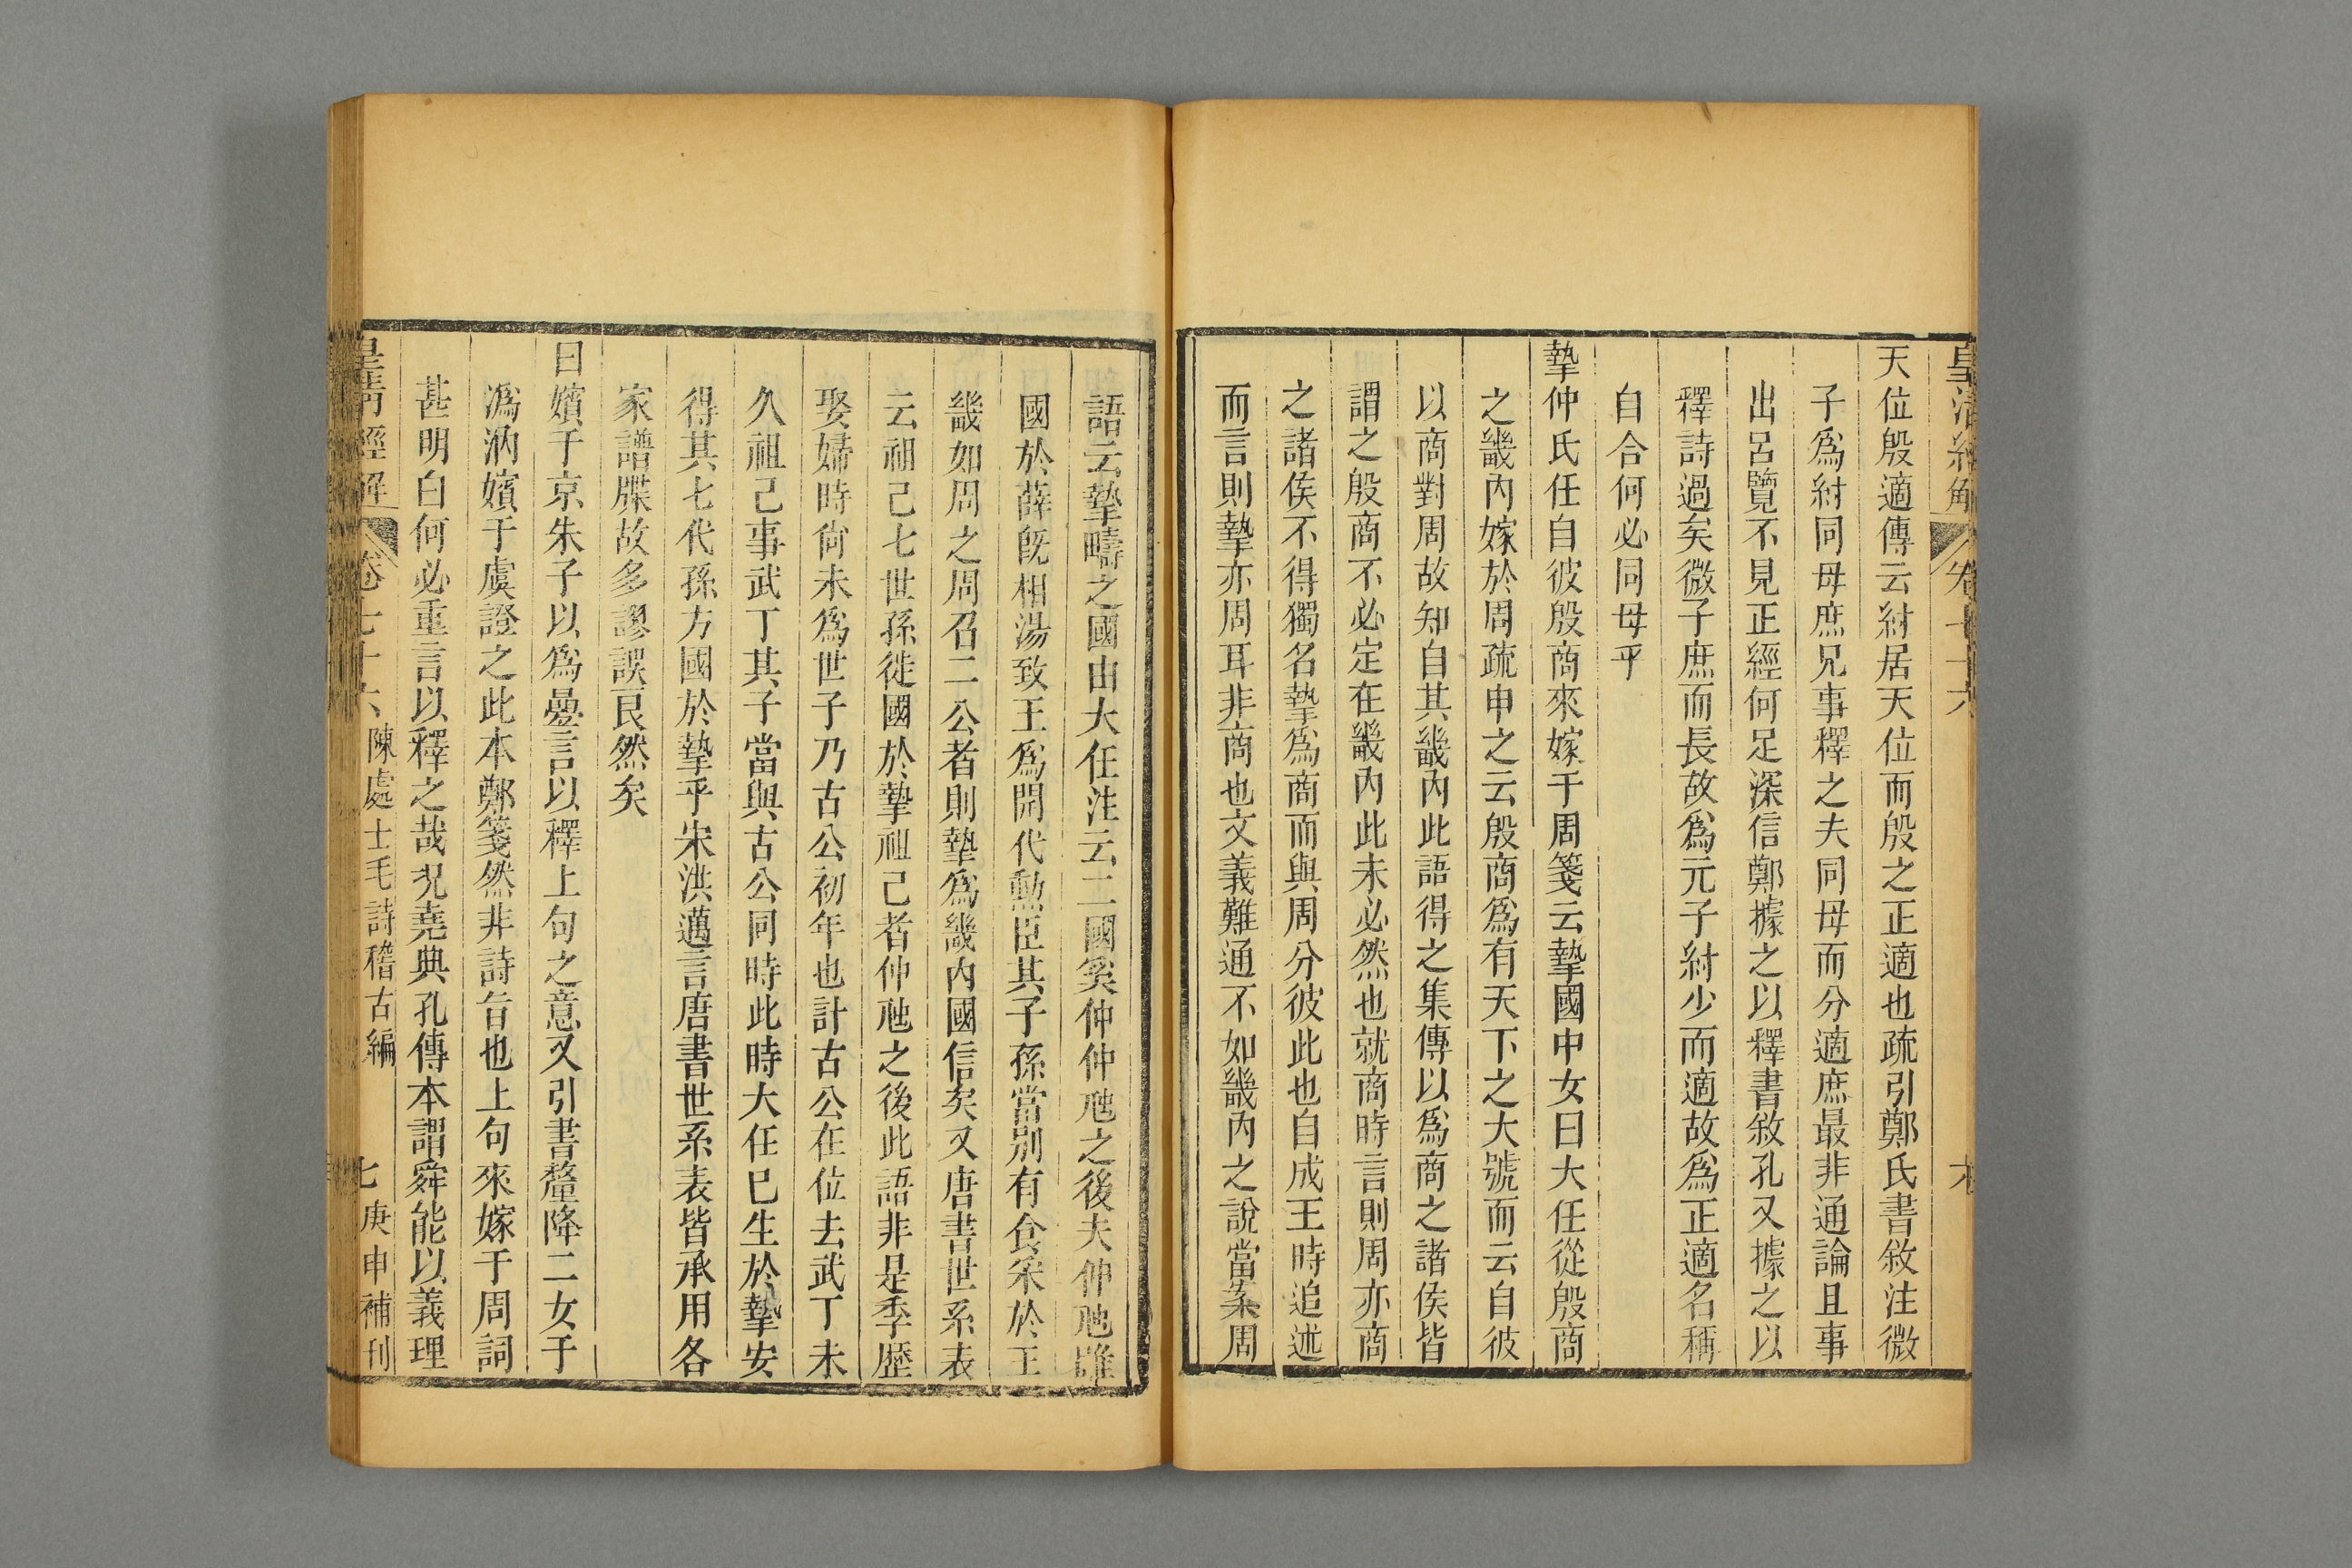 皇清經解 卷七十六
天位殷適傳云紂居天位而殷之正適也疏引鄭氏書敘注微
子爲紂同母庶兄事釋之夫同母而分適庶最非通論且事
出呂覽不見正經何足深信鄭據之以釋書敘孔又據之以
釋詩過矣微子庶而長故爲元子紂少而適故爲正適名稱
自合何必同母乎
摯仲氏任自彼殷商來嫁于周箋云摯國中女曰大任從殷商
之畿內嫁於周疏申之云殷商爲有天下之大號而云自彼
以商對周故知自其畿內此語得之集傳以爲商之諸侯皆
謂之殷商不必定在畿內此未必然也就商時言則周亦商
之諸侯不得獨名摯爲商而與周分彼此也自成王時追述
而言則摯亦周耳非商也文義難通不如畿內之說當案周
語云摯疇之國由大任注云二國奚仲仲虺之後夫仲虺雖
國於薛旣相湯致王爲開代勲臣其子孫當別有食采於王
畿如周之周召二公者則摯爲畿內國信矣又唐書世系表
云祖己七世孫徙國於摯祖己者仲虺之後此語非是季歷
娶婦時尙未爲世子乃古公初年也計古公在位去武丁未
久祖己事武丁其子當與古公同時此時大任已生於摯安
得其七代孫方國於摯乎宋洪邁言唐書世系表皆承用各
家譜牒故多謬誤良然矣
曰嬪于京朱子以爲疊言以釋上句之意又引書釐降二女于
溈汭嬪于虞證之此本鄭箋然非詩旨也上句來嫁于周詞
甚明白何必重言以釋之哉況堯典孔傳本謂舜能以義理
皇淸經解 卷七十六 陳處士毛詩稽古編 七 庚申補刊